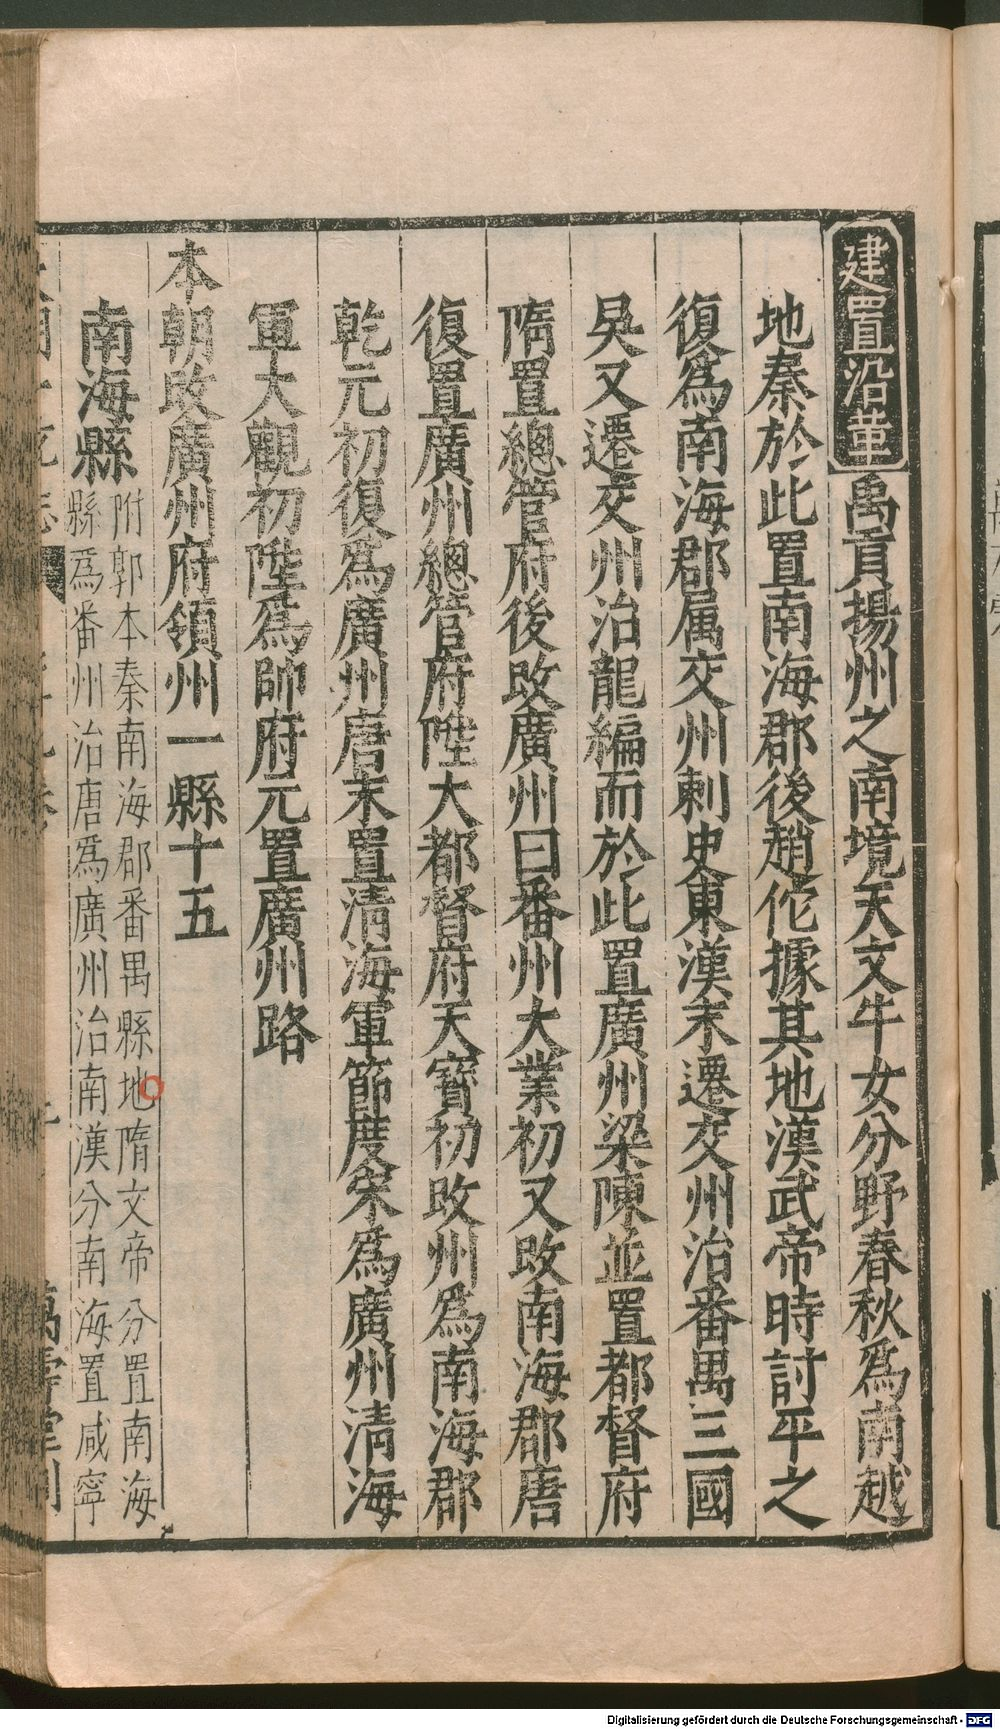 建置沿革 禹貢揚州之南境天文牛女分野春秋爲南越
地秦於此置南海郡後趙佗據其地漢武帝時討平之
復爲南海郡属交州刺史東漢末遷交州治番禺三國
吳又遷交州治龍編而於此置廣州梁陳並置都督府
隋置總管府後改廣州曰番州大業初又改南海郡唐
復置廣州總管府陞大都督府天寶初改州爲南海郡
乾元初復爲廣州唐末置清海軍節度宋爲廣州清海
軍大觀初陞爲帥府元置廣州路
本朝改廣州府領州一縣十五
南海縣 附郭本秦南海郡番禺縣地隋文帝分置南海
縣爲番州治唐爲廣州治南漢分南海置咸寧
Digitalisierung gefördert durch die Deutsche Forschungsgemeinschaft - DFG